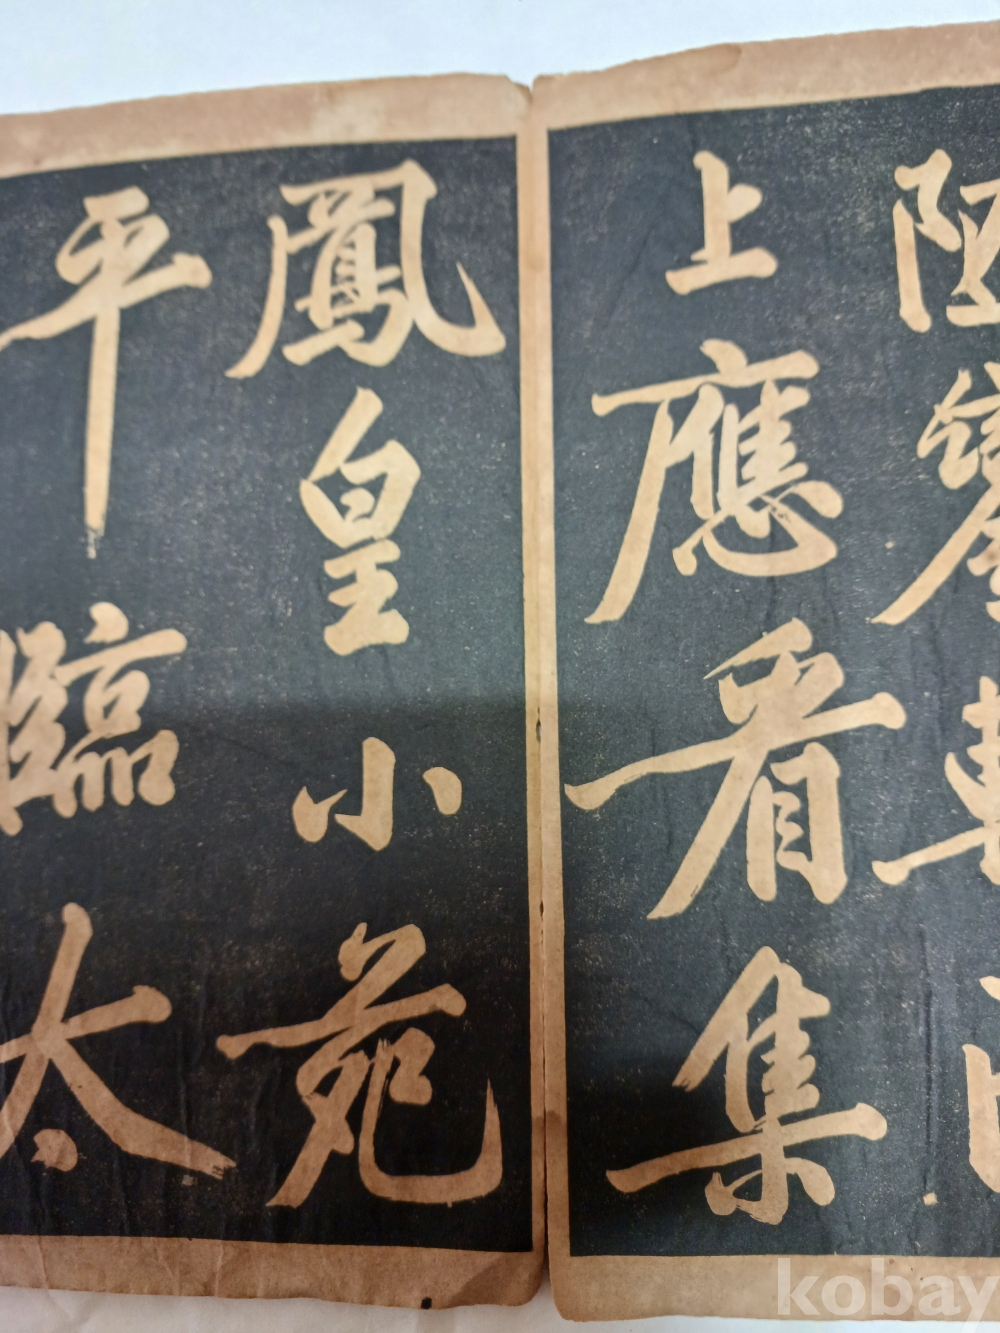 上應看集
鳳皇小苑
平臨太
kobay